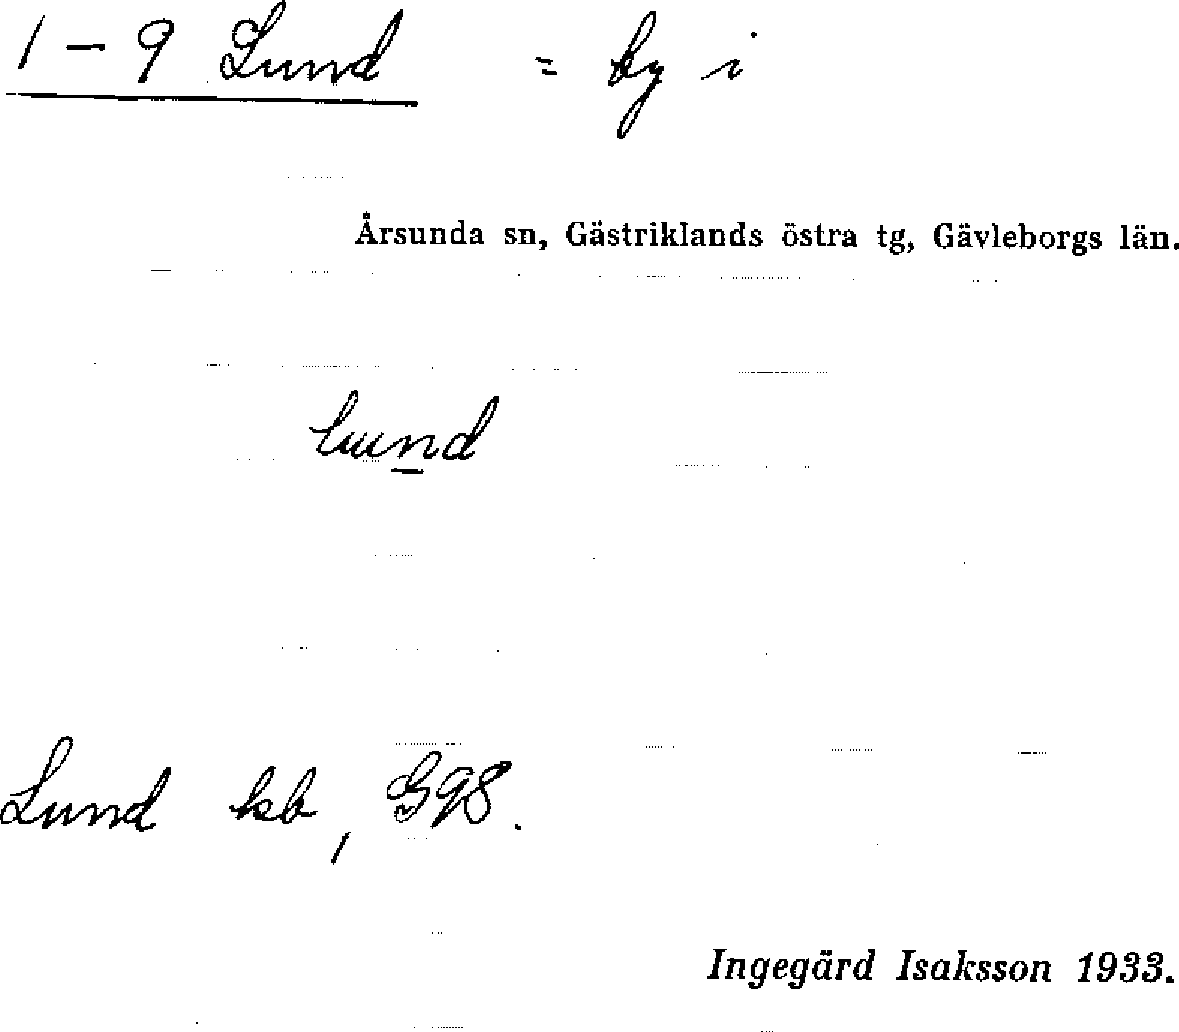 1 – 9 Lund = by i
Årsunda sn, Gästriklands östra tg, Gävleborgs län.
lund
Lund kb, G98.
Ingegärd Isaksson 1933.